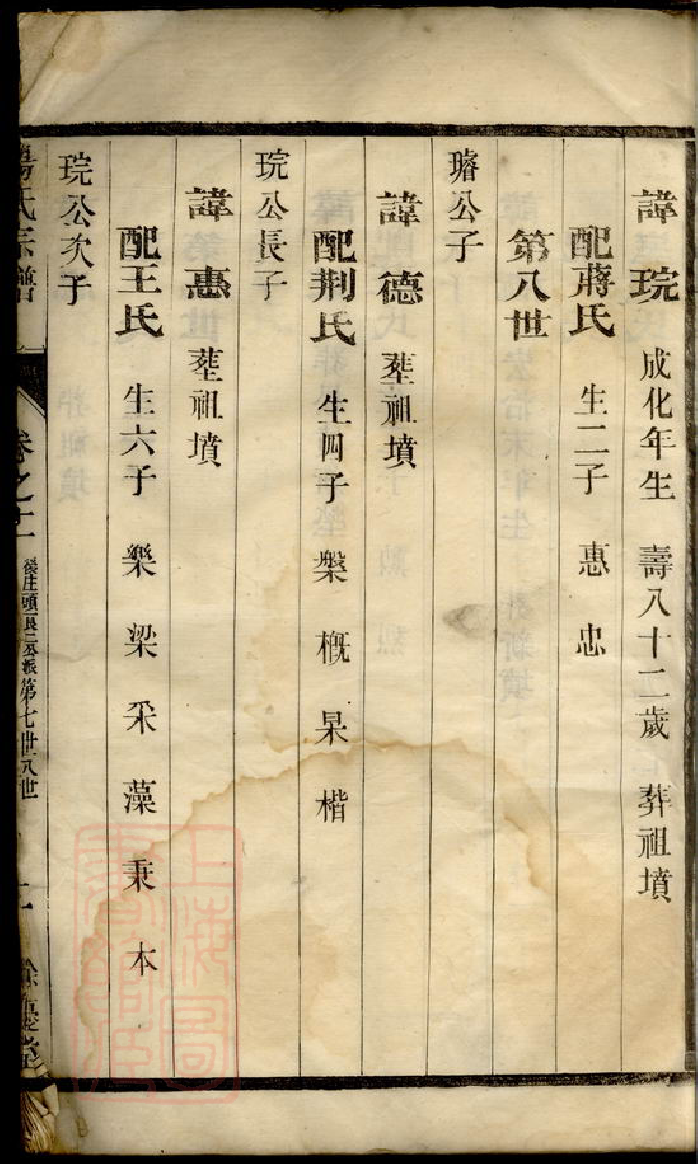 諱琓 成化年生 壽八十二歲 葬祖墳
配蔣氏 生二子 惠 忠
第八世
璿公子
諱德 塟祖墳
配荆氏 生四子 槃 概 杲 楷
琓公長子
諱惠 塟祖墳
配王氏 生六子 樂 梁 采 藻 秉 本
琓公次子
氏宗譜 卷之二 後庄頭長二公派第七世八世 二 餘慶堂
上海圖書館藏